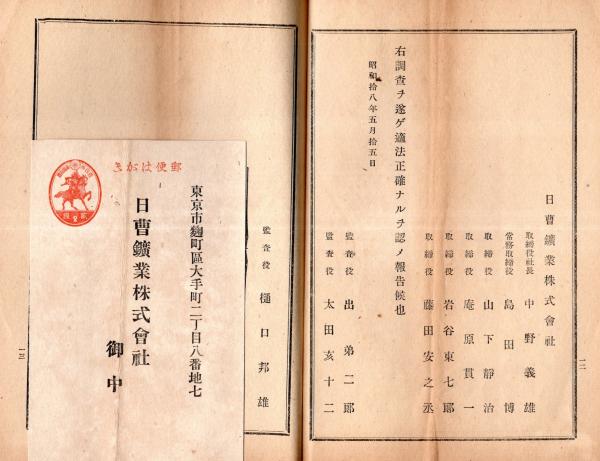 日曹鑛業株式會社
取締役社長 中野義雄
常務取締役 島田博
取締役 山下靜治
取締役 庵原貫一
取締役 岩谷東七郎
取締役 藤田安之丞
右調査ヲ遂ゲ適法正確ナルヲ認メ報告候也
昭和拾八年五月拾五日
監査役 出弟二郎
監査役 太田亥十二
一二
監査役 樋口邦雄
一三
郵便はがき
東京市麴町區大手町二丁目八番地七
日曹鑛業株式會社
御中